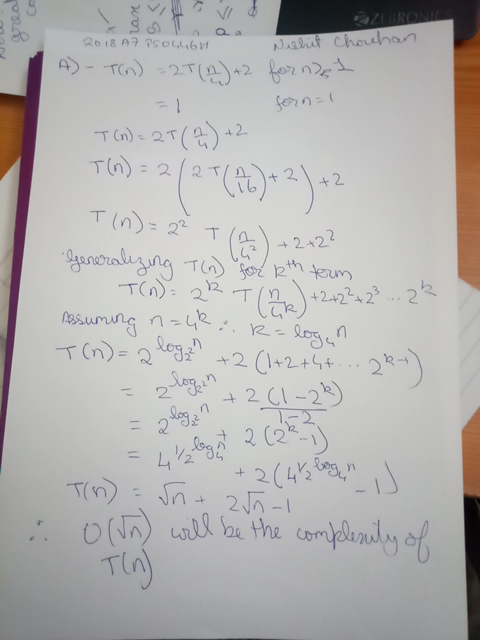 ZEBRONICS
2018A7PS0446H Nishit Chouhan
A) - T(n) = 2T(n/4) + 2 for n > 1
= 1 for n = 1
T(n) = 2T(n/4) + 2
T(n) = 2(2T(n/16) + 2) + 2
T(n) = 2² T(n/4²) + 2 + 2²
Generalizing T(n) for kth term
T(n) = 2^k T(n/4^k) + 2 + 2² + 2³ ... 2^k
Assuming n = 4^k ∴ k = log₄n
T(n) = 2^log₂²n + 2(1 + 2 + 4 + ... 2^k-1)
= 2^log₂²n + 2(1 - 2^k)/1 - 2
= 2^log₂²n + 2(2^k - 1)
= 4^1/2 log₄n + 2(4^1/2 log₄n - 1)
T(n) = √n + 2√n - 1
∴ O(√n) will be the complexity of
T(n)